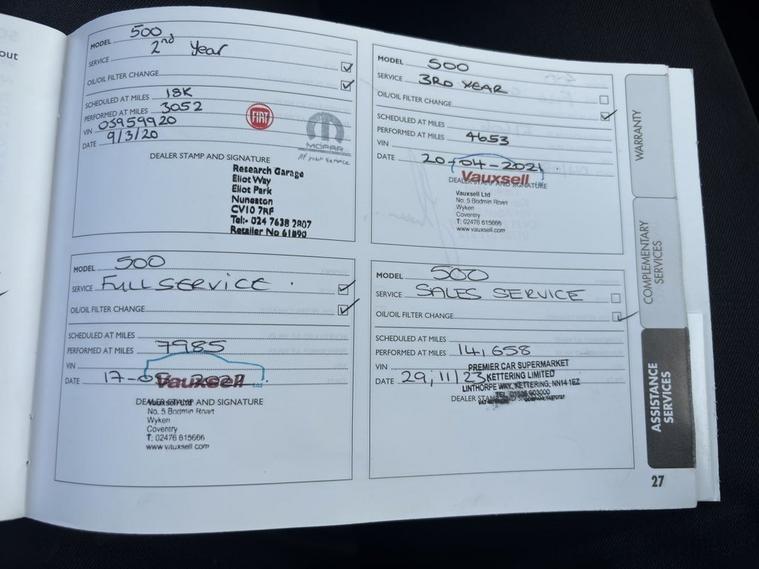 out
MODEL 500
SERVICE 2nd Year
OIL/OIL FILTER CHANGE
SCHEDULED AT MILES 18K
PERFORMED AT MILES 3052
VIN 03959920
DATE 9/3/20
FIAT
MOPAR
DEALER STAMP AND SIGNATURE
Research Garage
Eliot Way
Eliot Park
Nuneaton
CV10 7RF
Tel:- 024 7638 2807
Retailer No 61890
MODEL 500
SERVICE 3RD YEAR
OIL/OIL FILTER CHANGE
SCHEDULED AT MILES
PERFORMED AT MILES 4653
VIN
DATE 20-04-2021
Vauxsell
DEALER STAMP AND SIGNATURE
Vauxsell Ltd
No. 5 Bodmin Road
Wyken
Coventry
T: 02476 615666
www.vauxsell.com
MODEL 500
SERVICE FULL SERVICE
OIL/OIL FILTER CHANGE
SCHEDULED AT MILES
PERFORMED AT MILES 7985
VIN
DATE 17-
Vauxsell Ltd
DEALER STAMP AND SIGNATURE
Vauxsell Ltd
No. 5 Bodmin Road
Wyken
Coventry
T: 02476 615666
www.vauxsell.com
MODEL 500
SERVICE SALES SERVICE
OIL/OIL FILTER CHANGE
SCHEDULED AT MILES
PERFORMED AT MILES 14,658
VIN
DATE 29/11/23
PREMIER CAR SUPERMARKET
KETTERING LIMITED
LINTHORPE WAY, KETTERING, NN14 1EZ
DEALER STAMP
WARRANTY
COMPLEMENTARY SERVICES
ASSISTANCE SERVICES
27